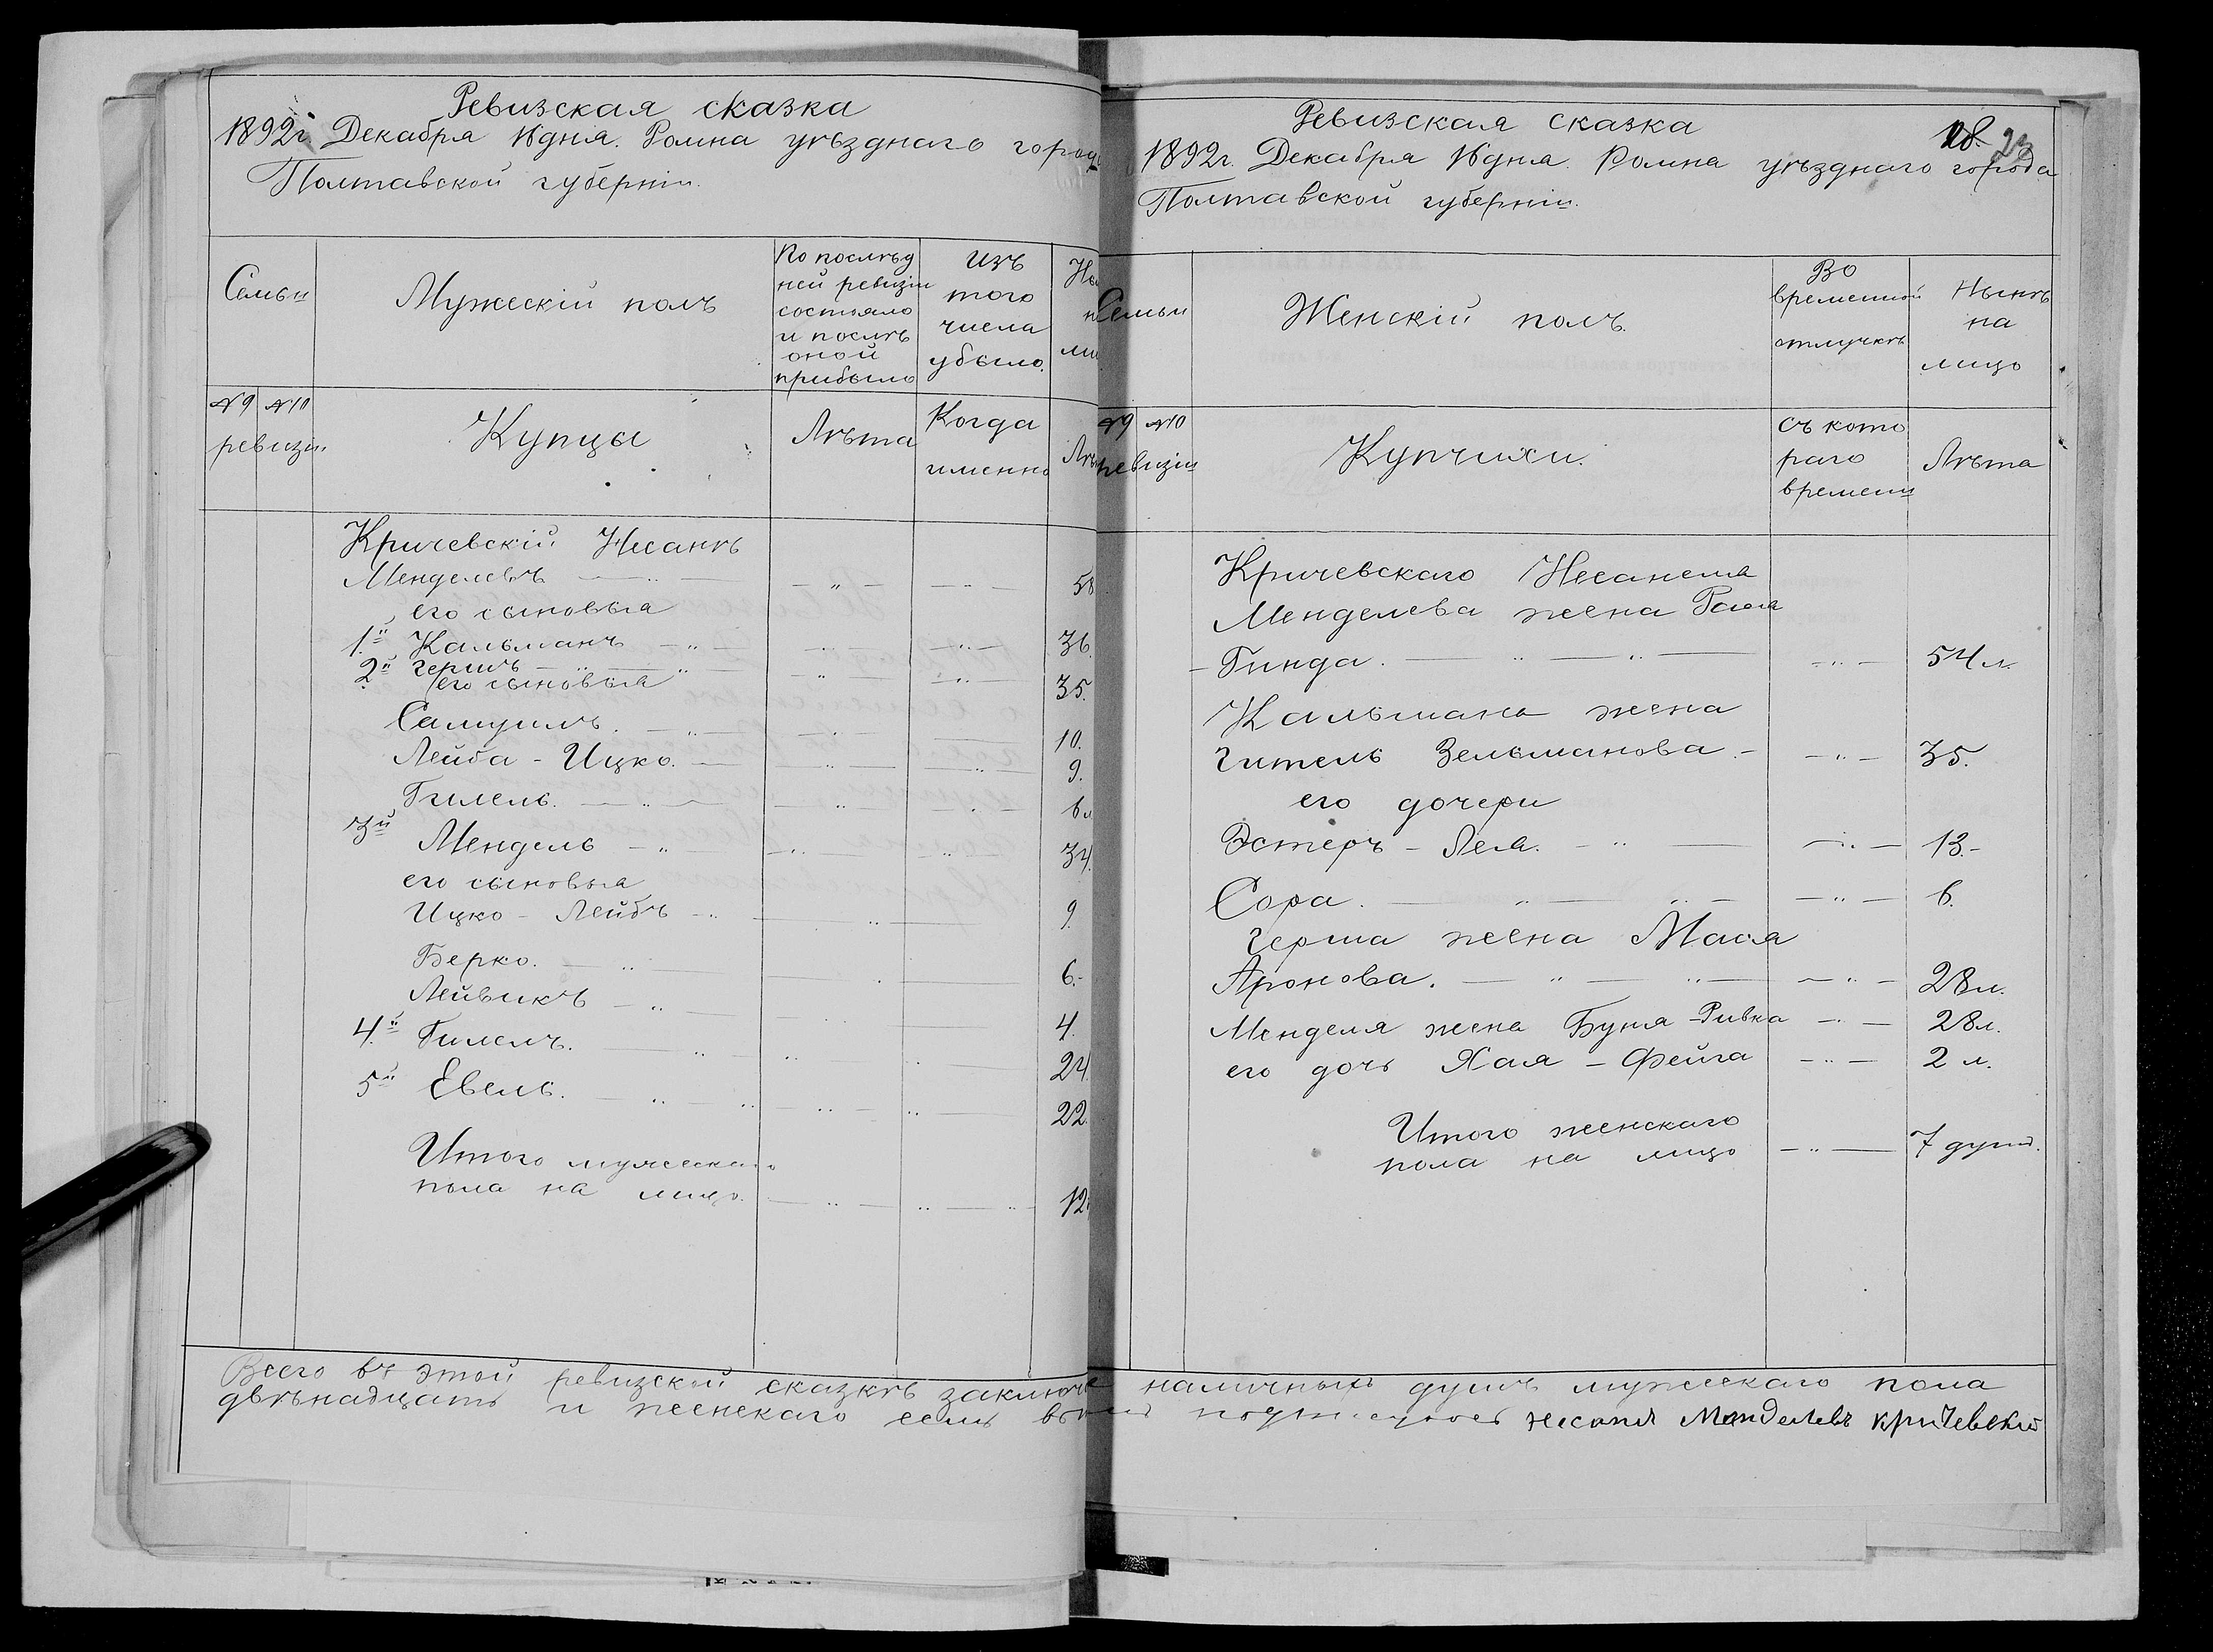 Ревизская сказка
1892г. Декабря 16 дня. Ромна уѣзднаго города
Полтавской губерніи.
Семьи
Мужескій полъ
По послѣд
ней ревизіи
состояло
и послѣ
оной
прибыло
Изъ
того
числа
убыло.
№9 №10
ревизіи.
Купцы
Лѣта
Когда
именно
Кричевскій Несанъ
Менделевъ 58
его сыновья
1й Кальманъ 36.
2й Гершъ 35.
его сыновья
Самуилъ. 10.
Лейба - Ицко. 9.
Гилель. 6 л
3й Мендель 34.
его сыновья
Ицко - Лейбъ 9.
Берко. 6.
Лейвикъ 4.
4й Гилелъ. 24.
5й Евель. 22.
Итого мужескаго
пола на лицо. 12
Ревизская сказка
23
1892г. Декабря 16 дня. Ромна уѣзднаго города
Полтавской губерніи.
Семьи
Женскій полъ.
Во
временной
отлучкѣ
Нынѣ
на
лицо
№9 №10
ревизіи
Купчихи.
съ кото
раго
времени
Лѣта
Кричевскаго Несанеля
Менделева жена Рася
- Гинда. 54 л.
Кальмана жена
Гитель Зельманова - 35.
его дочери
Эстеръ - Лея. 13.-
Сора. 6.
Герша жена Мася
Аронова. 28 л.
Менделя жена Буня - Ривка 28 л.
его дочь Хая - Фейга 2 л.
Итого женскаго
пола на лицо 7 душъ.
Всего въ этой ревизской сказкѣ заключ наличныхъ душъ мужескаго пола
двѣнадцать и женскаго семь Менделевъ Кричевскій